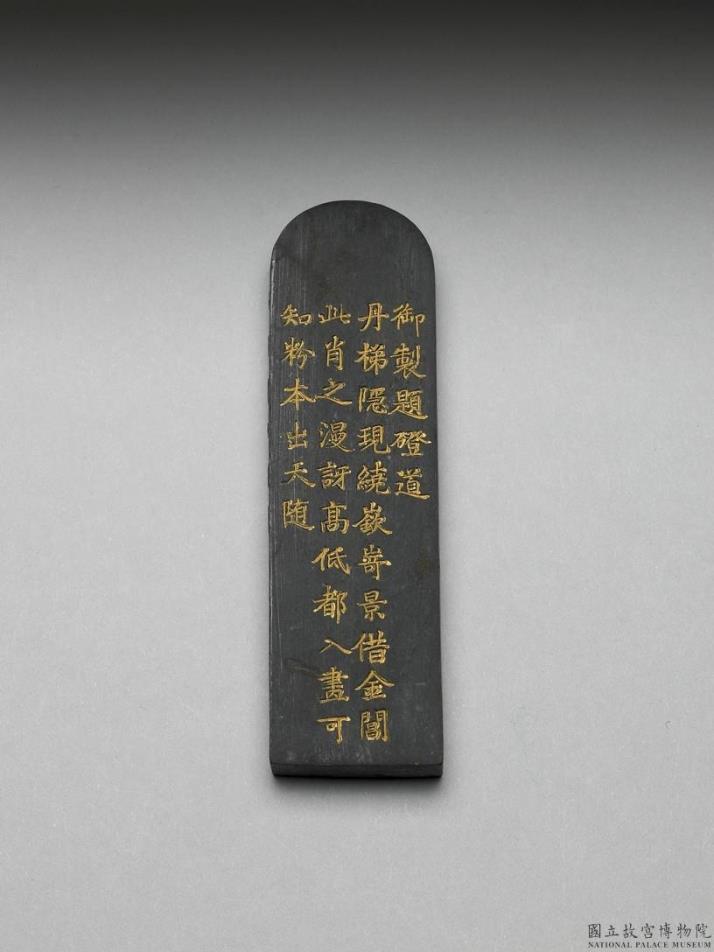 御製題磴道
丹梯隱現繞嶔崎景借金閶
此肖之漫訝髙低都入畫可
知粉本出天随
國立故宮博物院
NATIONAL PALACE MUSEUM